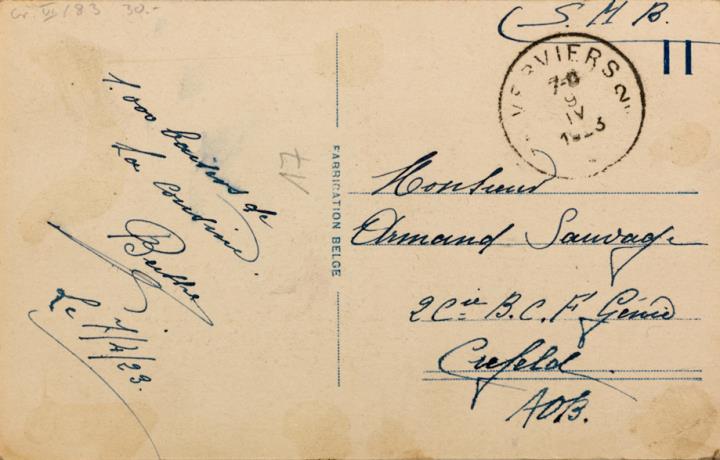 Gr. VI / 83 30.-
S.M.B.
VERVIERS 2
7-8
9
IV
1923
1.000 baisers de
ta cousine
Le 7/4/23.
FABRICATION BELGE
Monsieur
Armand Sauvage
2 Cie B.C.F. Génie
Crefeld
AOB.